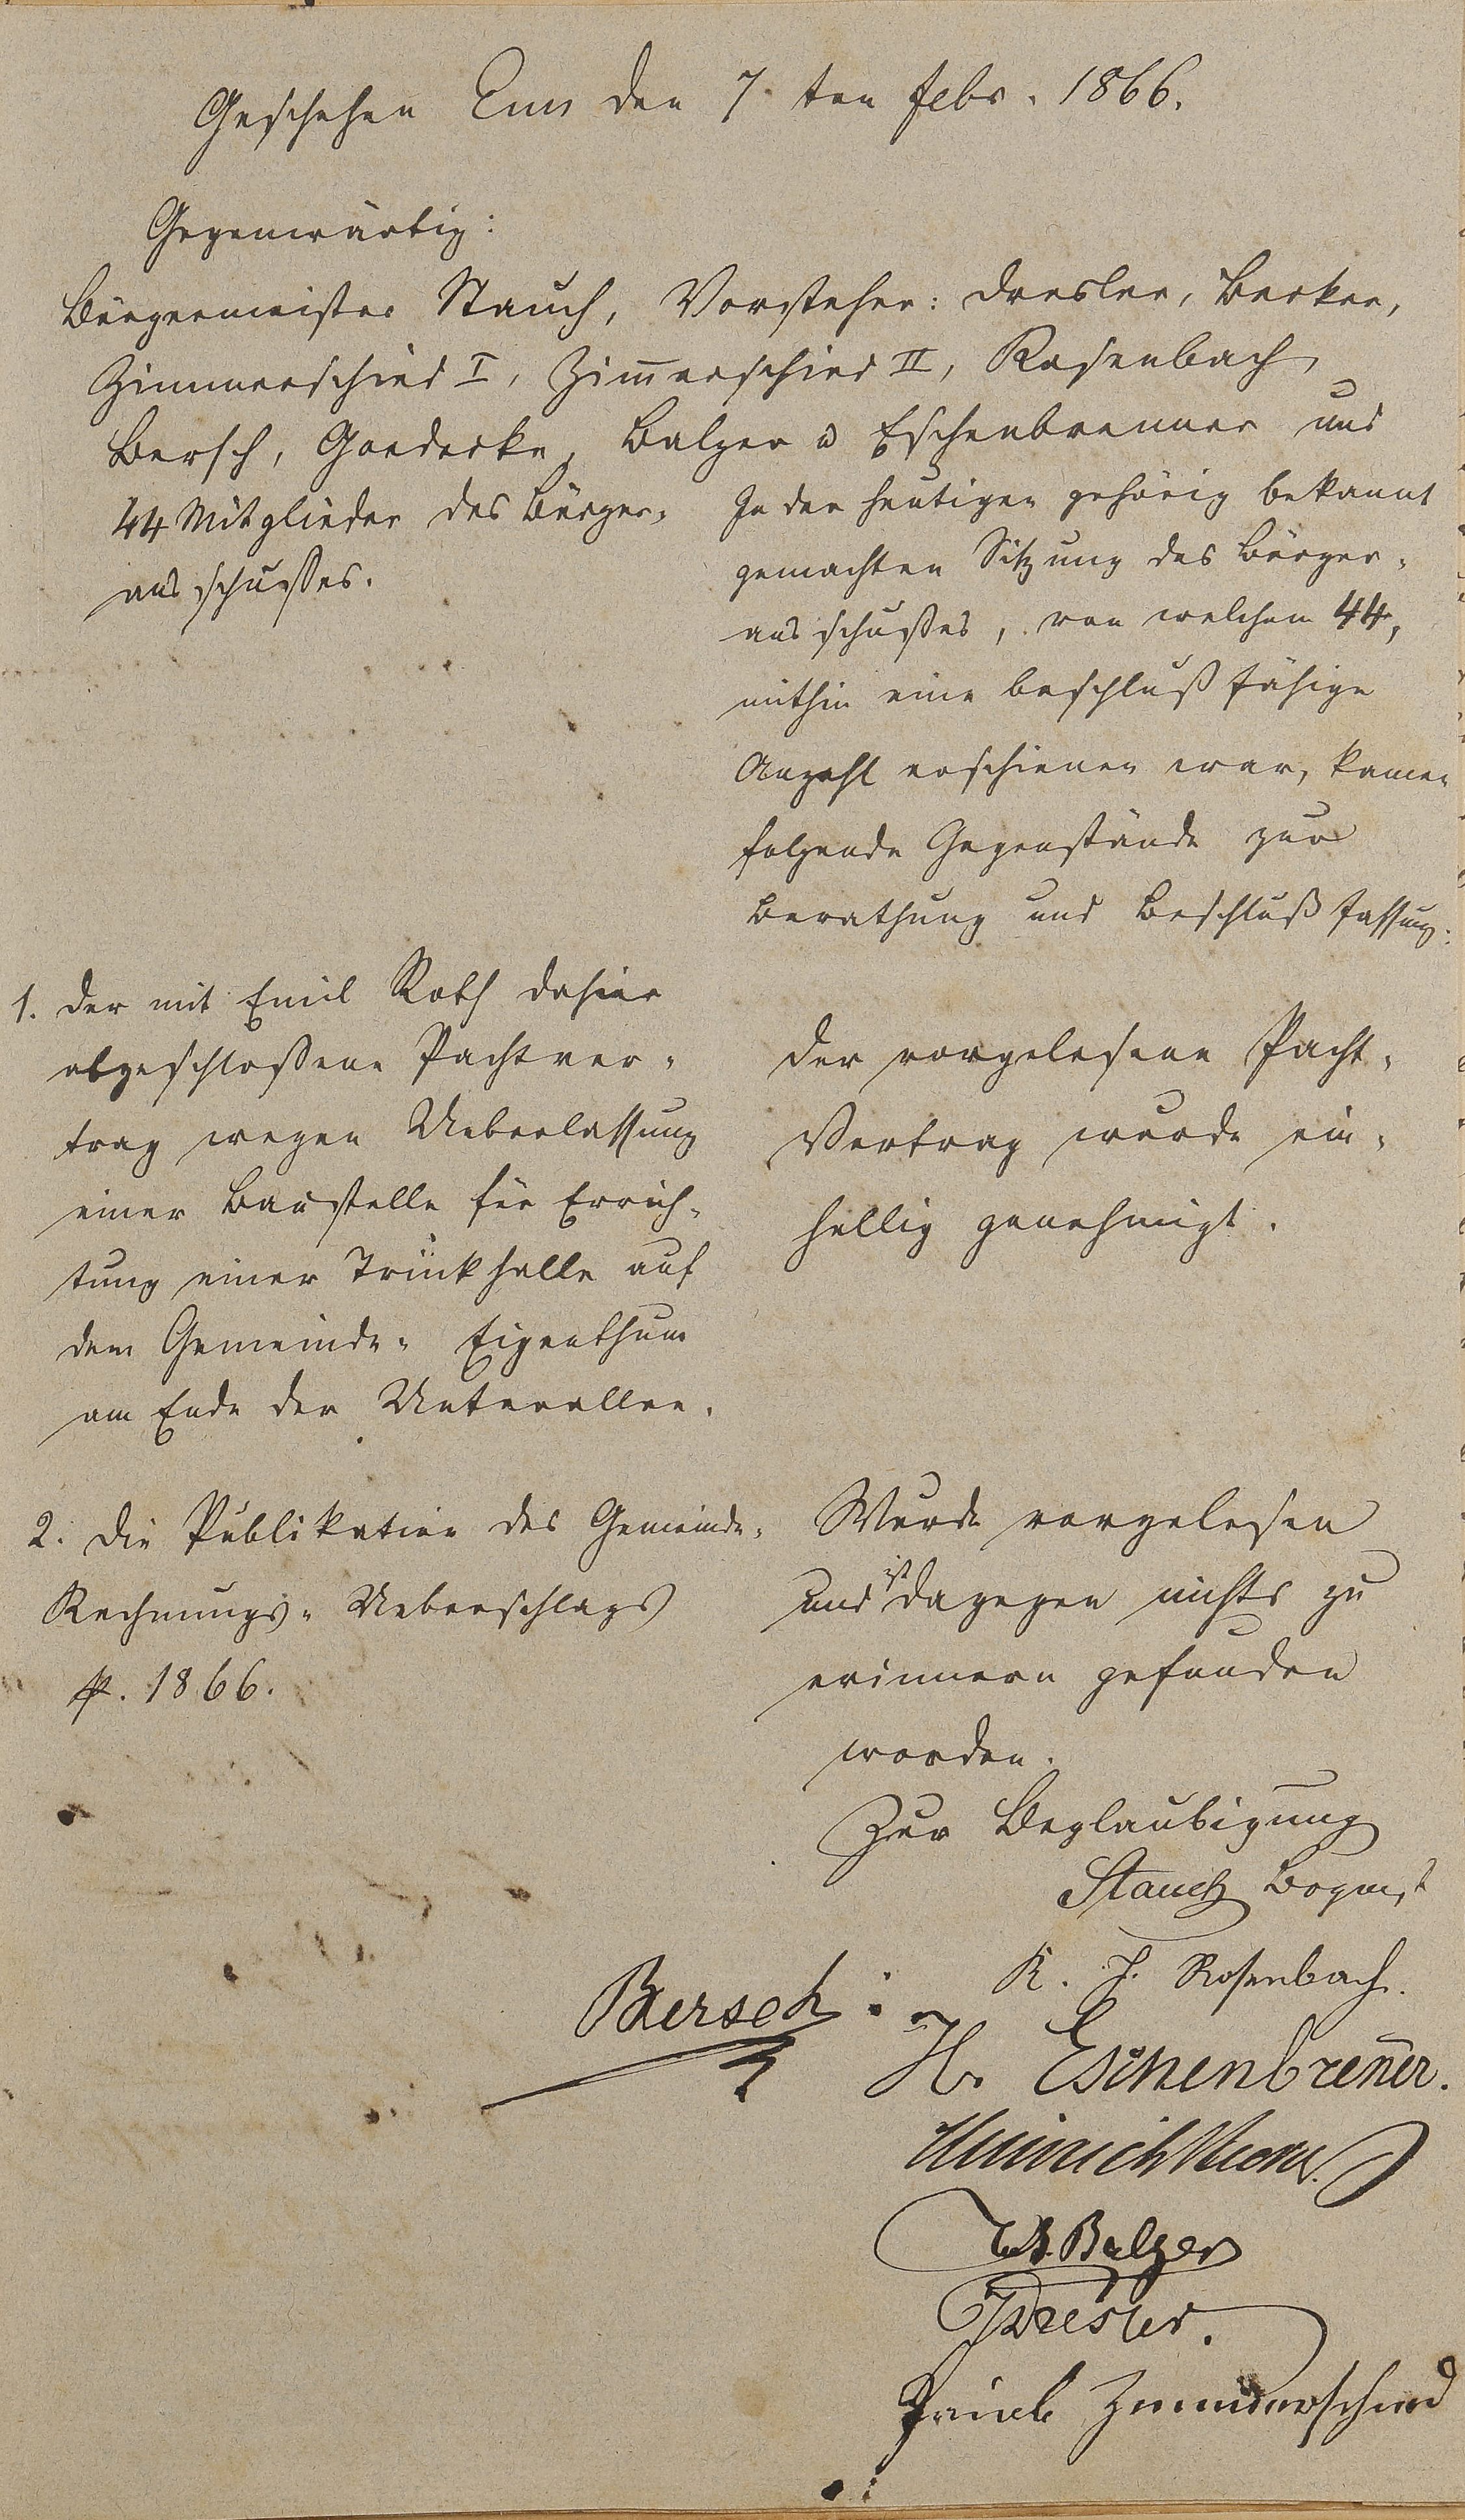 Geschehen Ems den 7. ten Febr. 1866.
Gegenwärtig:
Bürgermeister Stauch, Vorsteher: Dresler, Becker,
Zimmerschied I, Zim̄erschied II, Rosenbach,
Bersch, Goedecke, Balzer u Eschenbrenner und
44 Mitglieder des Bürger-
ausschußes.
In der heutigen gehörig bekannt
gemachten Sitzung des Bürger-
ausschußes, von welchem 44,
mithin eine beschlußfähige
Anzahl erschienen war, kamen
folgende Gegenstände zur
Berathung und Beschlußfassung:
1. Der mit Emil Roth dahier
abgeschloßene Pachtver-
trag wegen Ueberlassung
einer Baustelle für Errich-
tung einer Trinkhalle auf
dem Gemeinde- Eigenthum
am Ende der Unterallee.
Der vorgelesene Pacht-
Vertrag wurde ein-
hellig genehmigt.
2. Die Publikation des Gemeinde-
Rechnungs- Ueberschlags
p. 1866.
Wurde vorgelesen
und ist dagegen nichts zu
erinnern gefunden
worden.
Zur Beglaubigung
Stauch Bgrmst
K. J. Rosenbach.
Bersch
H. Eschenbren̄er.
Heinrich
Balzer
Dresler.
Jacob Zimmerschied